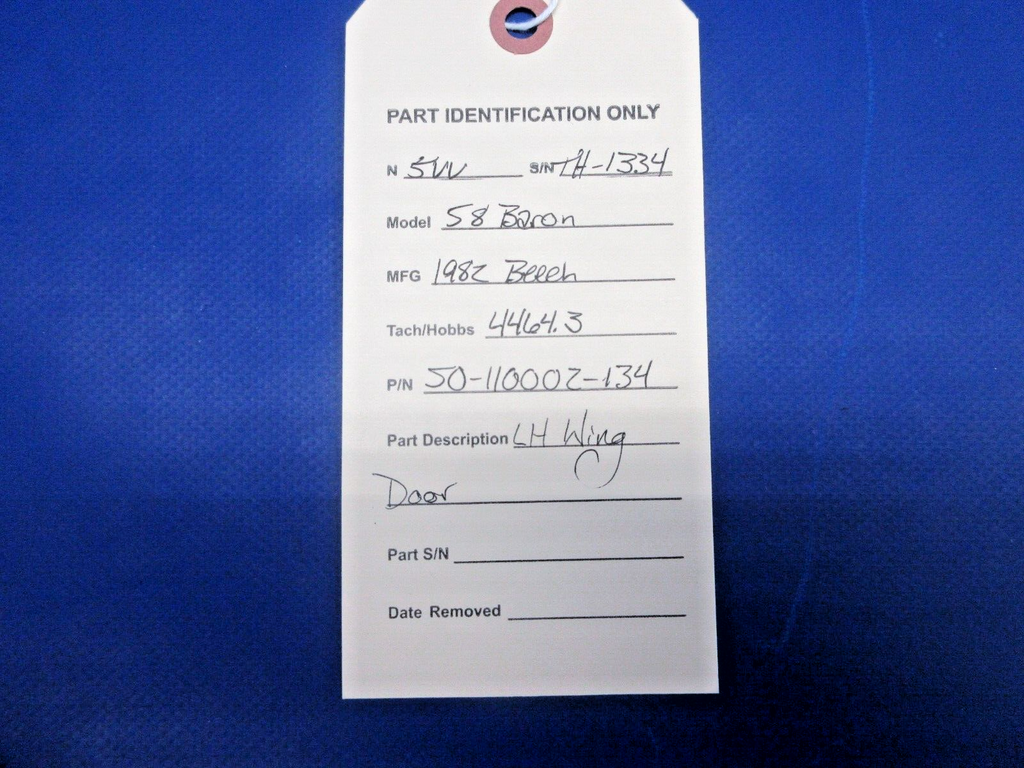 PART IDENTIFICATION ONLY
N 5VV S/N TH-1334
Model 58 Baron
MFG 1982 Beech
Tach/Hobbs 4464.3
P/N 50-110002-134
Part Description LH Wing
Door
Part S/N
Date Removed